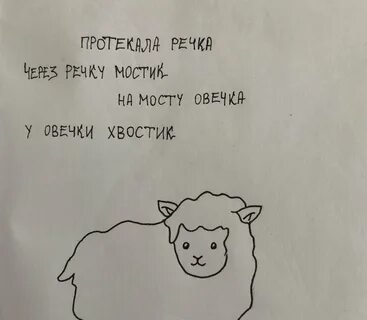 ПРОТЕКАЛА РЕЧКА
ЧЕРЕЗ РЕЧКУ МОСТИК
НА МОСТУ ОВЕЧКА
У ОВЕЧКИ ХВОСТИК